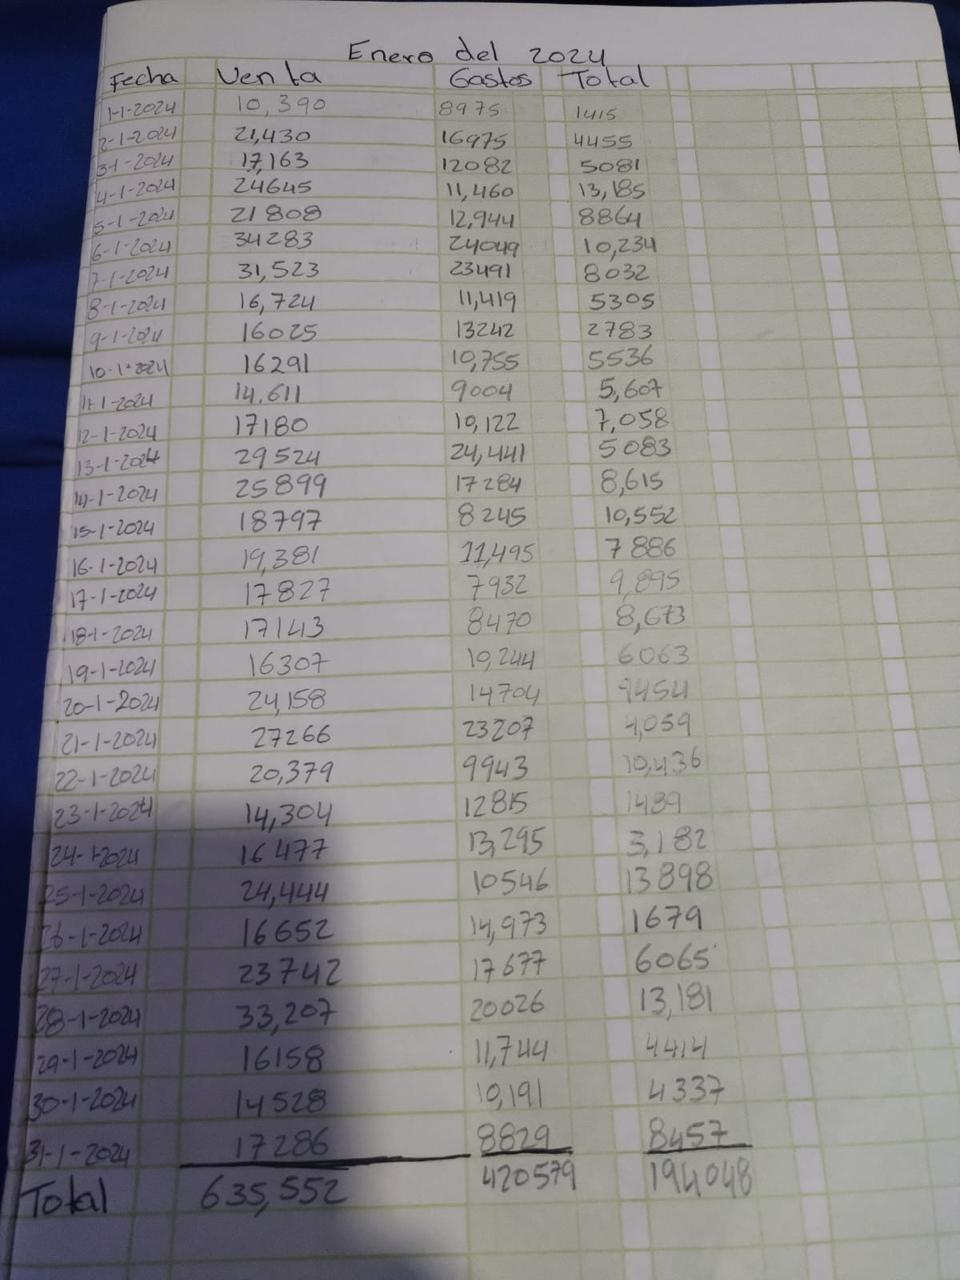 Enero del 2024
Fecha Venta Gastos Total
1-1-2024 10,390 8975 1415
2-1-2024 21,430 16975 4455
3-1-2024 17,163 12082 5081
4-1-2024 24645 11,460 13,185
5-1-2024 21808 12,944 8864
6-1-2024 34283 24049 10,234
7-1-2024 31,523 23491 8032
8-1-2024 16,724 11,419 5305
9-1-2024 16025 13242 2783
10-1-2024 16291 10,755 5536
11-1-2024 14,611 9004 5,607
12-1-2024 17180 10,122 7,058
13-1-2024 29524 24,441 5083
14-1-2024 25899 17284 8,615
15-1-2024 18797 8245 10,552
16-1-2024 19,381 11,495 7886
17-1-2024 17827 7932 9,895
18-1-2024 17143 8470 8,673
19-1-2024 16307 10,244 6063
20-1-2024 24,158 14704 9454
21-1-2024 27266 23207 4,059
22-1-2024 20,379 9943 10,436
23-1-2024 14,304 12815 1489
24-1-2024 16477 13,295 3,182
25-1-2024 24,444 10546 13898
26-1-2024 16652 14,973 1679
27-1-2024 23742 17677 6065
28-1-2024 33,207 20026 13,181
29-1-2024 16158 11,744 4414
30-1-2024 14528 10,191 4337
31-1-2024 17286 8829 8457
Total 635,552 420579 194048